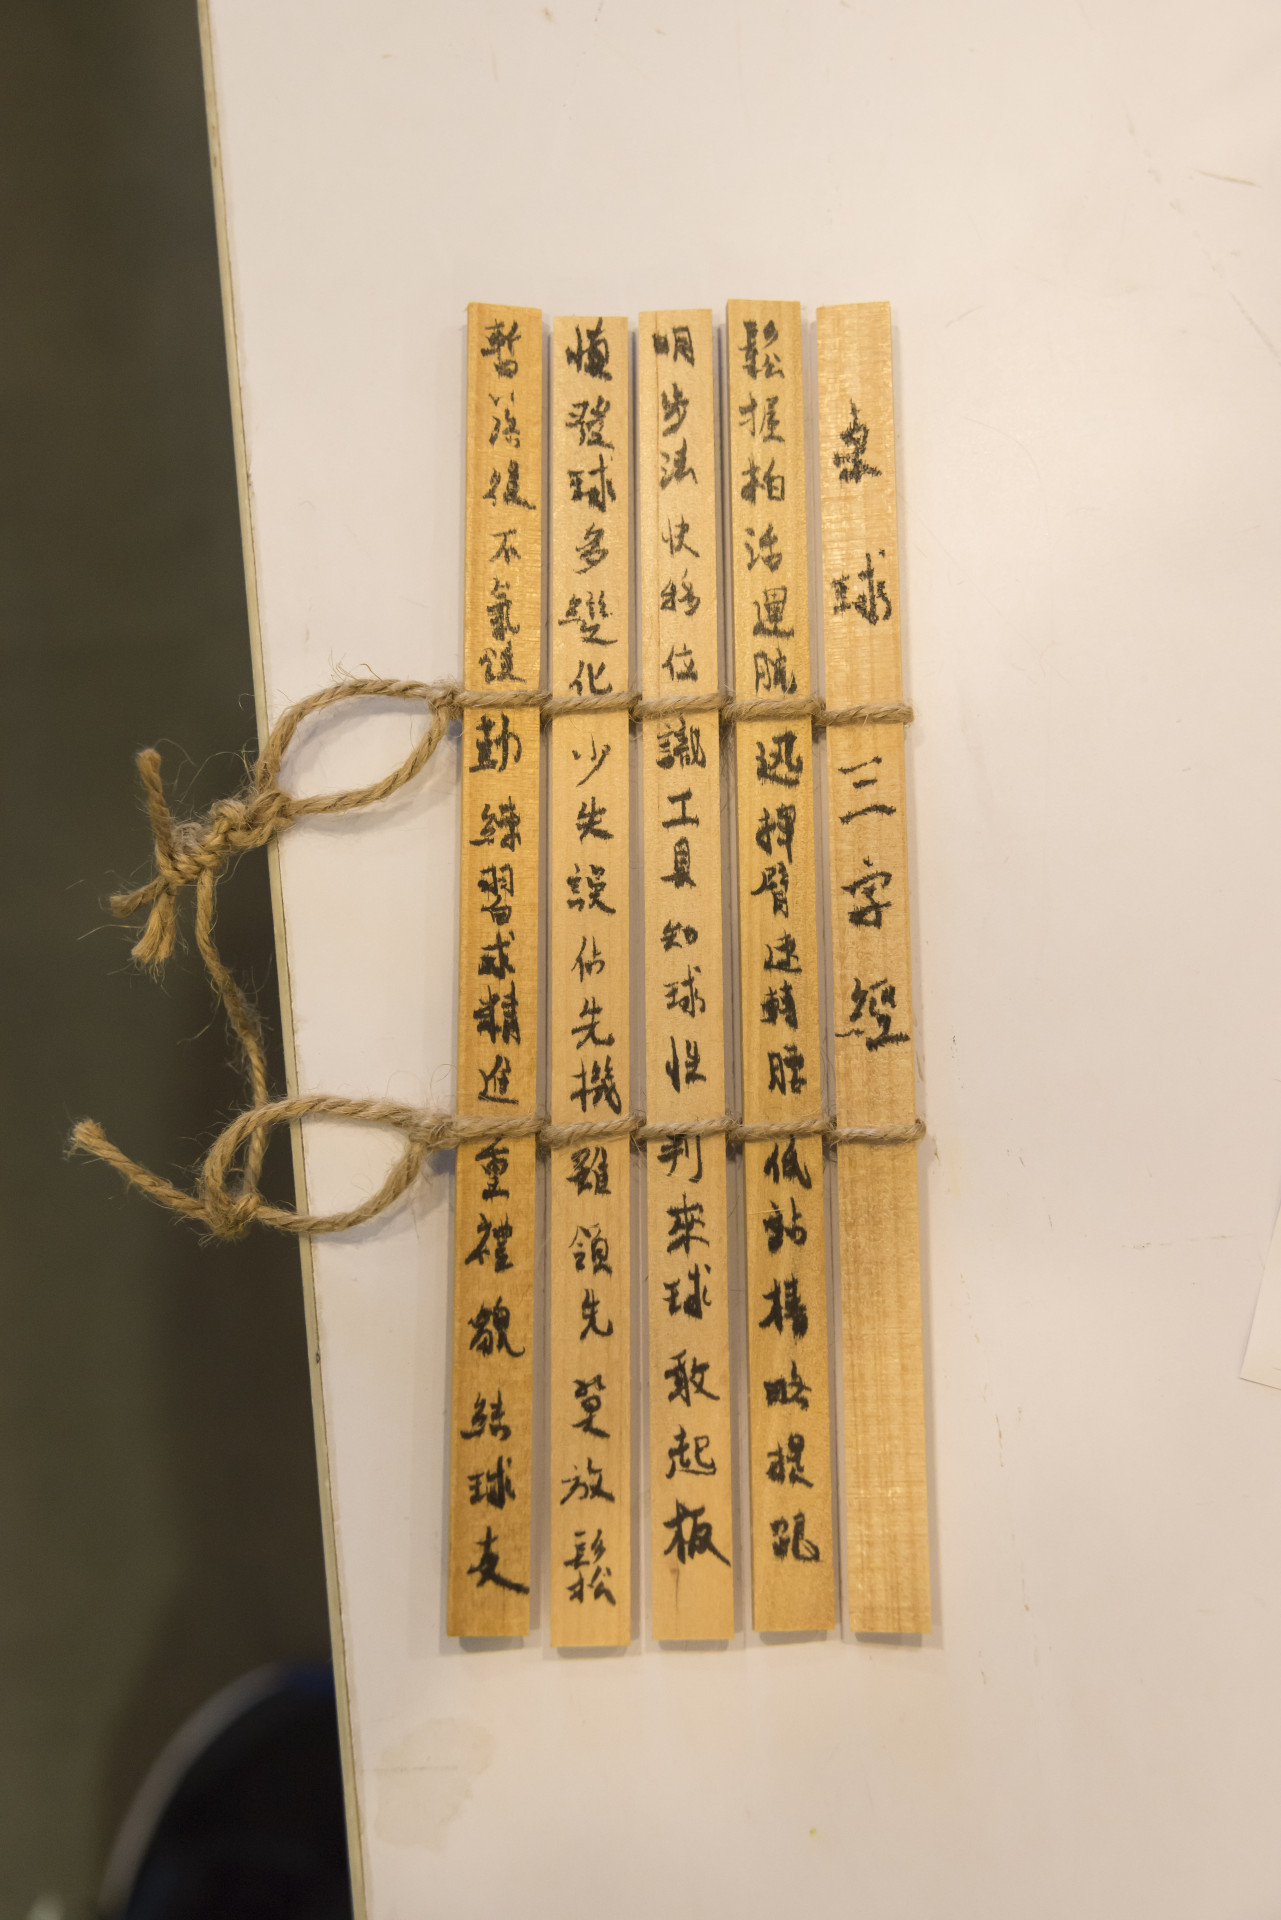 桌球三字經
鬆握拍活運腕迅揮臂速轉腰低站樁略提跟
明步法快移位識工具知球性判來球敢起板
慎發球多變化少失誤佔先機雖領先莫放鬆
暫落後不氣餒勤練習求精進重禮貌結球友